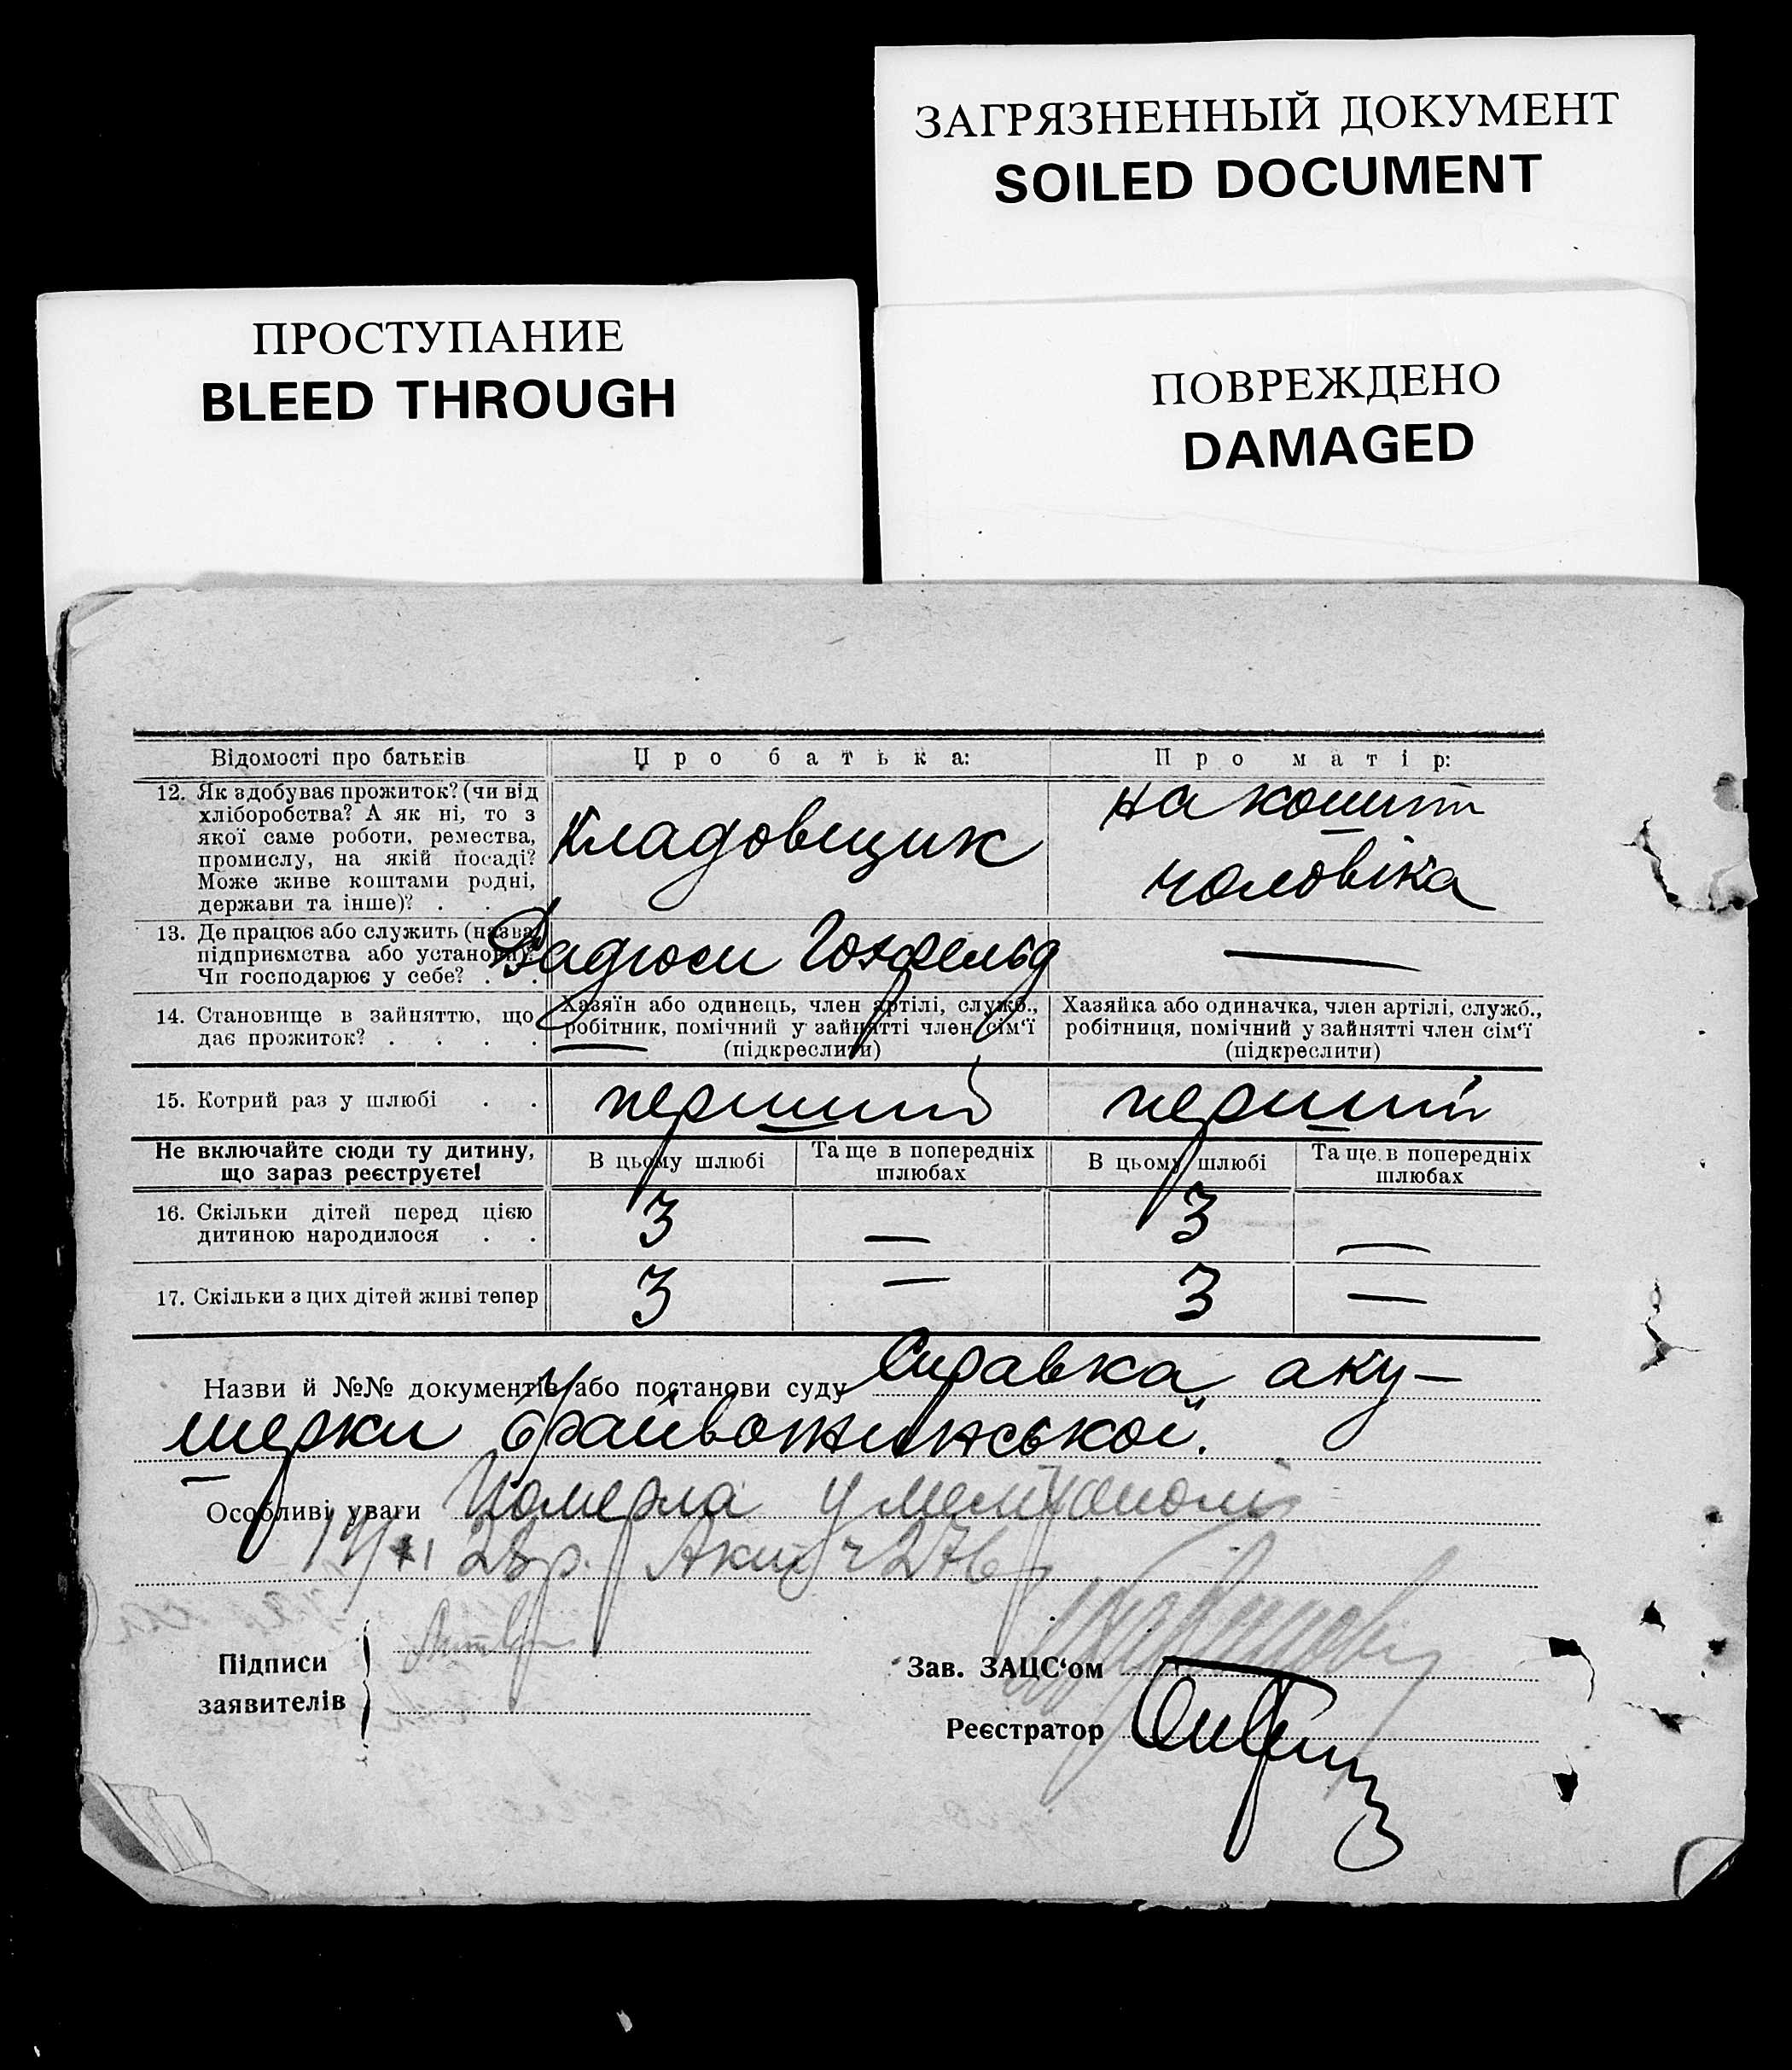 ЗАГРЯЗНЕННЫЙ ДОКУМЕНТ
SOILED DOCUMENT
ПРОСТУПАНИЕ
BLEED THROUGH
ПОВРЕЖДЕНО
DAMAGED
Відомості про батьків
Про батька:
Про матір:
12. Як здобуває прожиток? (чи від
хліборобства? А як ні, то з
якої саме роботи, ремества,
промислу, на якій посаді?
Може живе коштами родні,
держави та інше)? . .
Кладовщик
на кошти
чоловіка
13. Де працює або служить (назва
підприємства або установи)?
Чи господарює у себе? . .
—
14. Становище в зайняттю, що
дає прожиток? . . . .
Хазяїн або одинець, член артілі, служб.,
робітник, помічний у зайнятті член сім'ї
(підкреслити)
Хазяйка або одиначка, член артілі, служб.,
робітниця, помічний у зайнятті член сім'ї
(підкреслити)
15. Котрий раз у шлюбі . .
перший
перший
Не включайте сюди ту дитину,
що зараз реєструєте!
В цьому шлюбі
Та ще в попередніх
шлюбах
В цьому шлюбі
Та ще в попередніх
шлюбах
16. Скільки дітей перед цією
дитиною народилося . .
3
—
3
—
17. Скільки з цих дітей живі тепер
3
—
3
—
Назви й №№ документів або постанови суду Справка аку-
шерки
Особливі уваги Померла у
28р. Акт ч 276
Підписи
заявителів
Зав. ЗАЦС'ом
Реєстратор